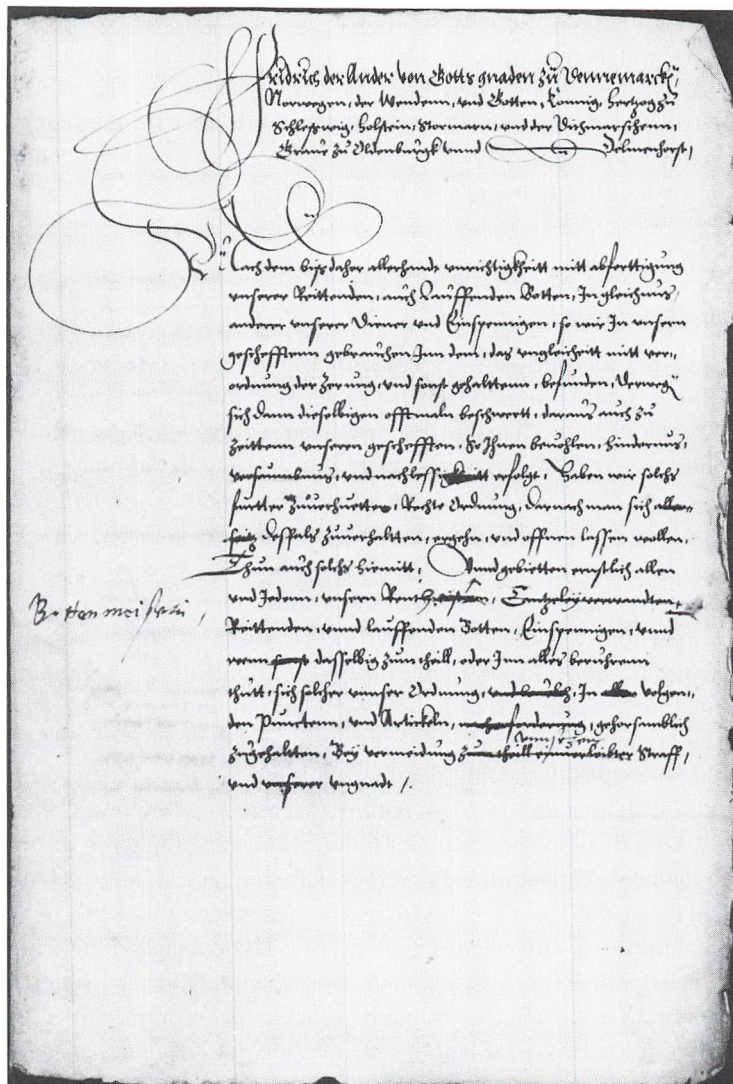 Fridrich der Ander von Gotts gnaden zů Dennemarckh,
Norwegen, der Wendenn, vnd Gotten, Könnig, Hertzog zů
Schleswig, Holstein, Stormarn, vnd der Dithmerschenn,
Graue zů Oldenbůrgk vnnd Delmenhorst,
Nach dem biss daher allerhandt vnrichtigkheitt mitt abferttigung
vnserer Reittenden, auch Lauffenden Botten, In gleichnus,
anderer vnserer Diener vnd Einspennigen, so wir In vnsern
geschefftenn gebrauchen, Inn dem, das vngleicheitt mitt ver-
ordnung der Zerung, vnd sonst gehalttenn, befunden, Derweg
sich dann dieselbigen offtmaln beschwertt, daraůs auch zů
Zeitten, vnsern geschefften, So Ihnen beuohlen, hindernus,
verseumbnus, vnd nachlessigkeitt erfolgt, Haben wir solchs
furtter Zuuerhuetten, Rechte Ordnung, darnach man sich allen-
deffals Zuuerhaltten, ergehn, vnd offnen lassen wollen,
Thun auch solchs hiemitt, Vnnd gebietten ernstlich allen
vnd Jedem, vnsern Rent, Cantzeley verwandten,
Bottenmeistern,
Reittenden, vnnd lauffenden Botten, Einspennigen, vnnd
wem dasselbig zum theill, oder Inn alles beruhrenn
thutt, sich solcher vnser Ordnung, In volgen-
den Punctenn, vnd Artickeln, gehorsamblich
Zuhaltten, Bey vermeidung Straff,
vnd vnserer vngnadt /.